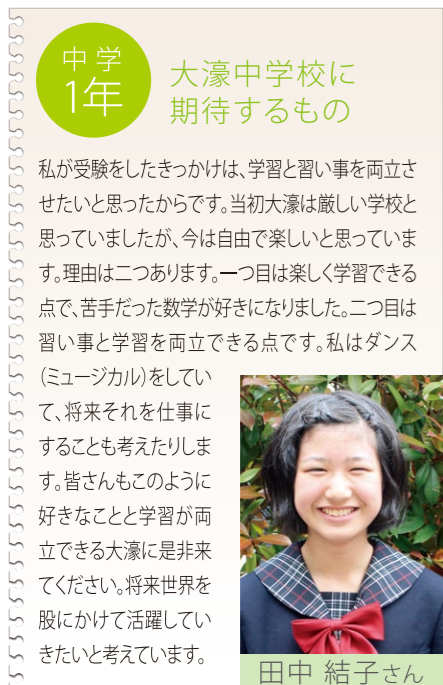 中学
1年
大濠中学校に
期待するもの
私が受験をしたきっかけは、学習と習い事を両立さ
せたいと思ったからです。当初大濠は厳しい学校と
思っていましたが、今は自由で楽しいと思っていま
す。理由は二つあります。一つ目は楽しく学習できる
点で、苦手だった数学が好きになりました。二つ目は
習い事と学習を両立できる点です。私はダンス
（ミュージカル）をしてい
て、将来それを仕事に
することも考えたりしま
す。皆さんもこのように
好きなことと学習が両
立できる大濠に是非来
てください。将来世界を
股にかけて活躍してい
きたいと考えています。
田中 結子さん